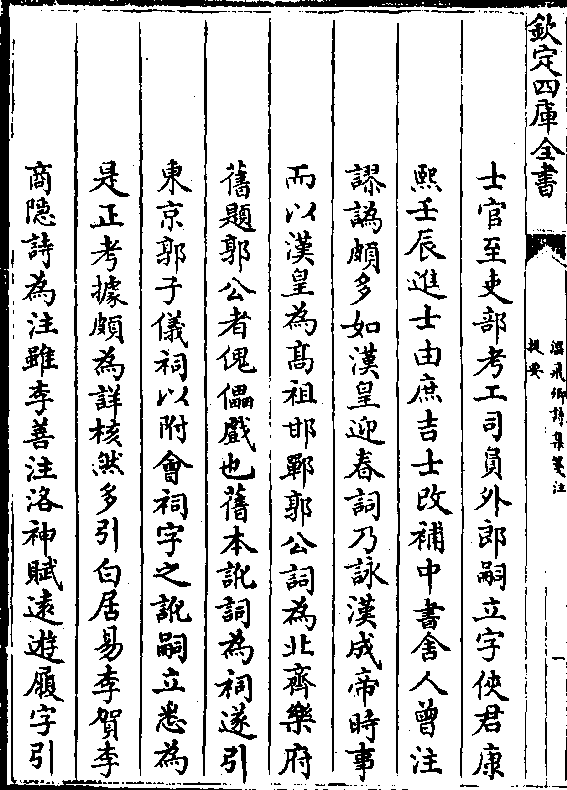 欽定四庫全書
溫飛卿詩集箋注
提要
士官至吏部考工司員外郎嗣立字俠君康
熙壬辰進士由庶吉士改補中書舍人曾注
謬譌頗多如漢皇迎春詞乃詠漢成帝時事
而以漢皇為髙祖邯鄲郭公詞為北齊樂府
舊題郭公者傀儡戲也舊本訛詞為祠遂引
東京郭子儀祠以附會祠字之訛嗣立悉為
是正考據頗為詳核然多引白居易李賀李
商隱詩為注雖李善注洛神賦遠遊履字引